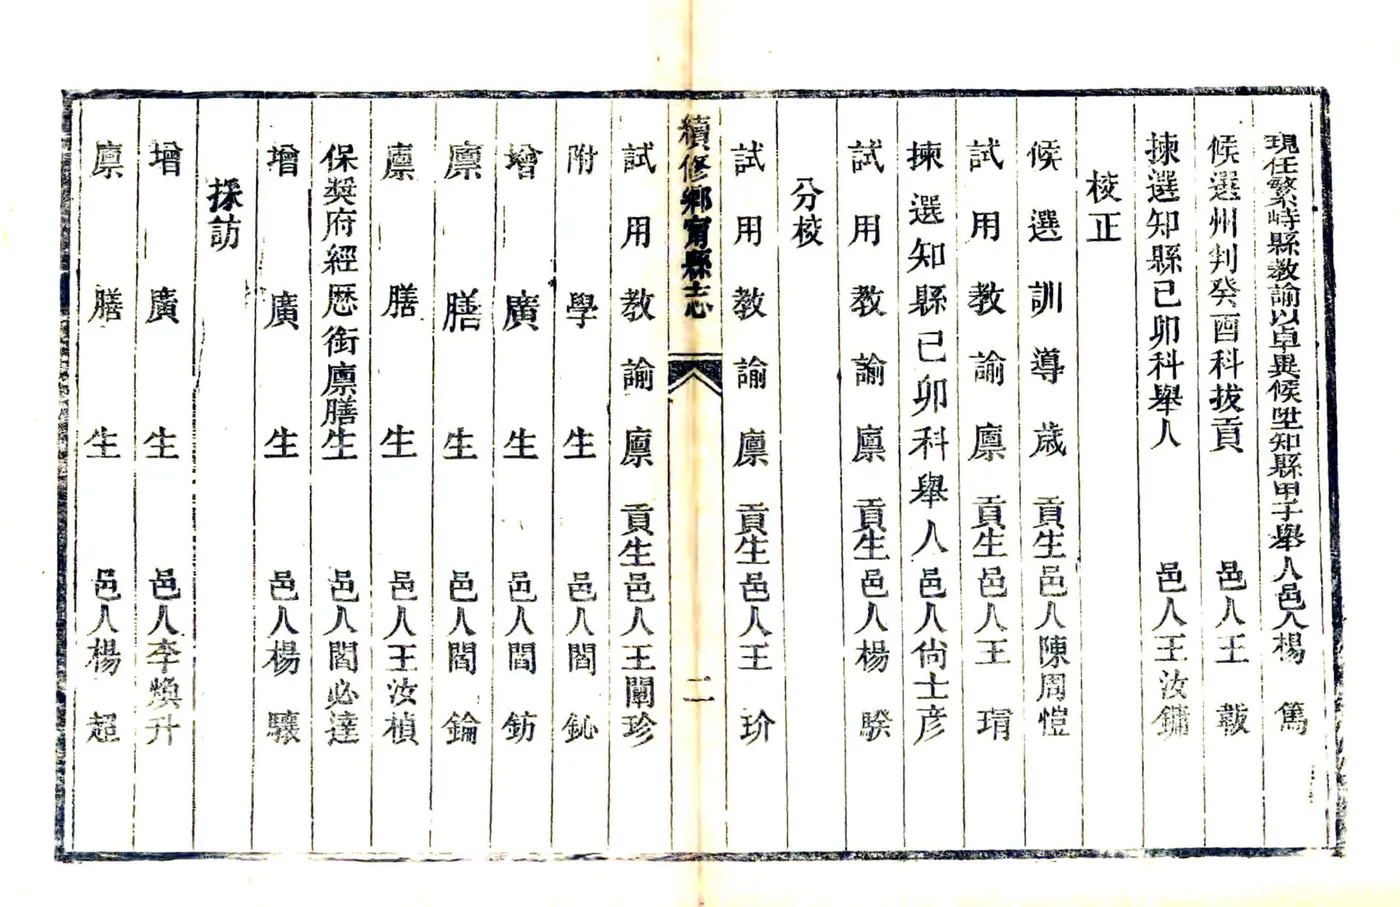 現任繁峙縣教諭以卓異候陞知縣甲子舉人邑人楊篤
候選州判癸酉科拔貢邑人王黻
揀選知縣己卯科舉人邑人王汝鏞
校正
候選訓導歲貢生邑人陳周愷
試用教諭廩貢生邑人王琄
揀選知縣己卯科舉人邑人尙士彥
試用教諭廩貢生邑人楊騤
分校
試用教諭廩貢生邑人王玠
續修鄉甯縣志
二
試用教諭廩貢生邑人王闡珍
附學生邑人閻鈊
增廣生邑人閻鈁
廩膳生邑人閻錀
廩膳生邑人王汝楨
保獎府經歷銜廩膳生邑人閻必達
增廣生邑人楊驤
採訪
增廣生邑人李煥升
廩膳生邑人楊超